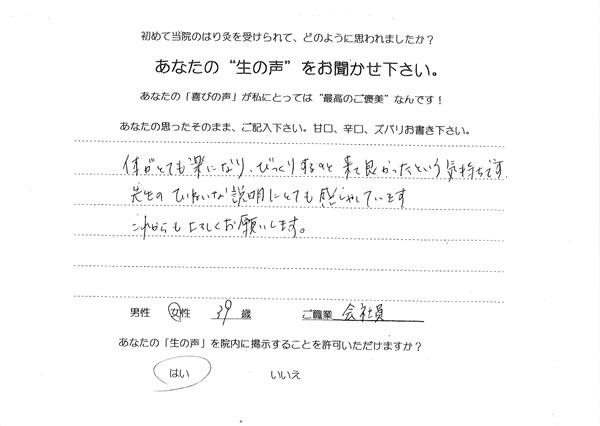 初めて当院のはり灸を受けられて、どのように思われましたか？
あなたの“生の声”をお聞かせ下さい。
あなたの「喜びの声」が私にとっては“最高のご褒美”なんです！
あなたの思ったそのまま、ご記入下さい。甘口、辛口、ズバリお書き下さい。
体がとても楽になり、びっくりするのと来て良かったという気持ちです。
先生のていねいな説明にとても感しゃしています
これからもよろしくお願いします。
男性 女性 39 歳 ご職業 会社員
あなたの「生の声」を院内に掲示することを許可いただけますか？
はい いいえ